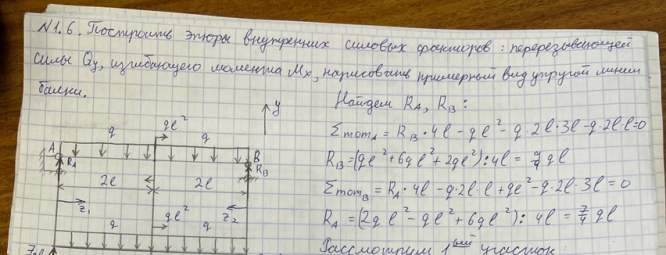 N1.6. Построить эпюры внутренних силовых факторов: перерезывающей
силы Qy, изгибающего момента Mx, нарисовать примерный вид упругой линии
балки.
Найдем RA, RB:
ΣmomA = RB·4l - ql² - q·2l·3l - q·2l·l=0
RB=(ql²+6ql²+2ql²):4l = 9/4 ql
ΣmomB = RA·4l - q·2l·l + ql² - q·2l·3l = 0
RA=(2ql²-ql²+6ql²):4l = 7/4 ql
Рассмотрим 1ый участок:
y
ql²
A q q B
RA RB
2l 2l
z1 ql² z2
q q